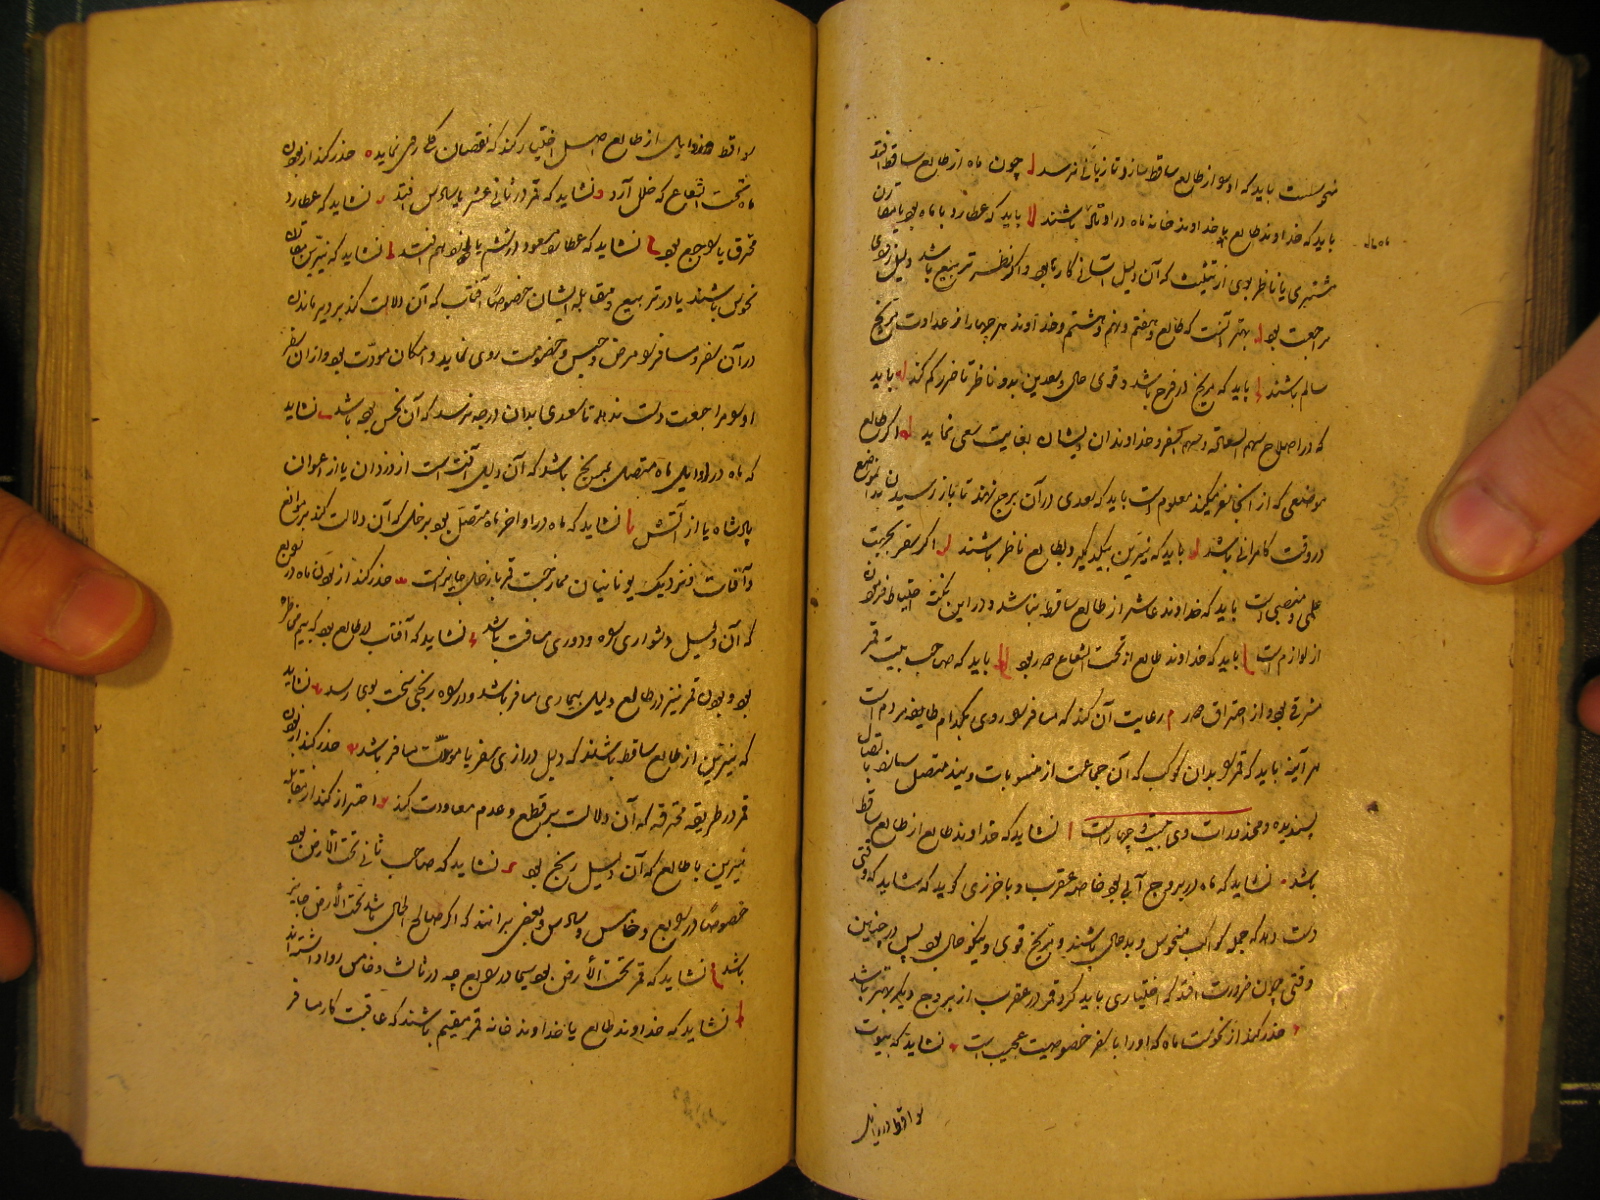 منحوست باید که او را از طالع ساقط سازد تا زیانی نرسد چون ماه از طالع ساقط افتد
باید که خداوند طالع یا خداوند خانه ماه در اوتاد باشند باید که عطارد با ماه بود یا مقارن
مشتری یا ناظر بوی از تثلیث که آن دلیل آسانی کارها بود و اگر نظر تربیع باشد دلیل زودی
مراجعت بود بهتر آنست که طالع و هفتم و نهم و هشتم و خداوند هر چهار از عداوت مریخ
سالم باشند باید که مریخ در فرح باشد و قوی حال و سعدین بدو ناظر تا ضرر کم کند باید
که در اصلاح سهم السعاده و سهم سفر و خداوندان ایشان بغایت سعی نماید اگر طالع
موضعی که از آنجا سفر میکند معلوم است باید که سعدی در آن برج نهند تا باز رسیدن بدآنموضع
در وقت کامرانی باشد باید که نیرین بیکدیگر و بطالع ناظر باشند اگر سفر بجهت
علمی و منصبی است باید که خداوند عاشر از طالع ساقط نباشد و در این نکته احتیاط فرمودن
از لوازم است باید که خداوند طالع از تحت الشعاع دور بود باید که صاحب بیت قمر
مشرقی بود و از احتراق دور رعایت آن کند که مسافر را روی بکدام طایفه مردم است
هر آینه باید که قمر را بدان کوکب که آن جماعت از منسوبات ویند متصل سازند باتصال
پسندیده و محذورات وی بیست و چهار است نشاید که خداوند طالع از طالع ساقط
باشد نشاید که ماه در بروج آبی بود خاصه عقرب و باخرزی گوید که شاید که وقتی
دست دهد که جمله کواکب منحوس و بدحال باشند و مریخ قوی و نیکو حال بود پس در چنین
وقتی چون ضرورت افتد که اختیاری باید کرد قمر در عقرب از بروج دیگر بهتر باشد
حذر کند از نحوست ماه که او را با سفر خصوصیت عجیب است نشاید که بیوت
سواقط در اوایل
سواقط اوایل از طالع اصل اختیار کند که نقصان کلی روی نماید حذر کند از بودن
ماه تحت الشعاع که خلل آرد نشاید که قمر در ثانی عشر یا سادس افتد نشاید که عطارد
محترق یا راجع بود نشاید که عطارد و مسعود در ششم یا دوازدهم افتد نشاید که نیرین مقارن
نحوس باشند یا در تربیع و مقابله ایشان خصوصا آفتاب که آن دلالت کند بر دیر ماندن
در آن سفر و مسافر را مرض و حبس و خصومت روی نماید و امکان مودت بود و از آن سفر
او را مراجعت دست ندهد تا سعدی بدان درجه نرسد که آن نحس بوده باشد نشاید
که ماه در اوایل ماه متصل بمریخ باشد که آن دلیل آفت است از دزدان یا از اعوان
پادشاه یا از آتش نشاید که ماه در اواخر ماه متصل بود بزحل که آن دلالت کند بر موانع
و آفات و نزدیک یونانیان ممازجت قمر با زحل جایز است حذر کند از بودن ماه در رابع
که آن دلیل دشواری راه و دوری مسافت باشد نشاید که آفتاب در طالع بود که بیم مخاطره
بود و بودن قمر نیز در طالع دلیل بیماری مسافر باشد و در راه رنجی سخت بوی رسد نشاید
که نیرین از طالع ساقط باشند که دلیل درازی سفر یا مسافر باشد حذر کند از بودن
قمر در طریقه محترقه که آن دلالت بر قطع و عدم معاودت کند احتراز کند از مقابله
نیرین با طالع که آن دلیل رنج بود نشاید که صاحب ثانی تحت الارض بود
خصوصا در رابع و خامس و سادس و بعضی برآنند که اگر صالح الحال باشد تحت الارض جایز
باشد نشاید که قمر تحت الارض بود سیما در رابع چه در ثالث و خامس روا داشته اند
نشاید که خداوند طالع یا خداوند خانه قمر مقیم باشند که عاقبت کار مسافر